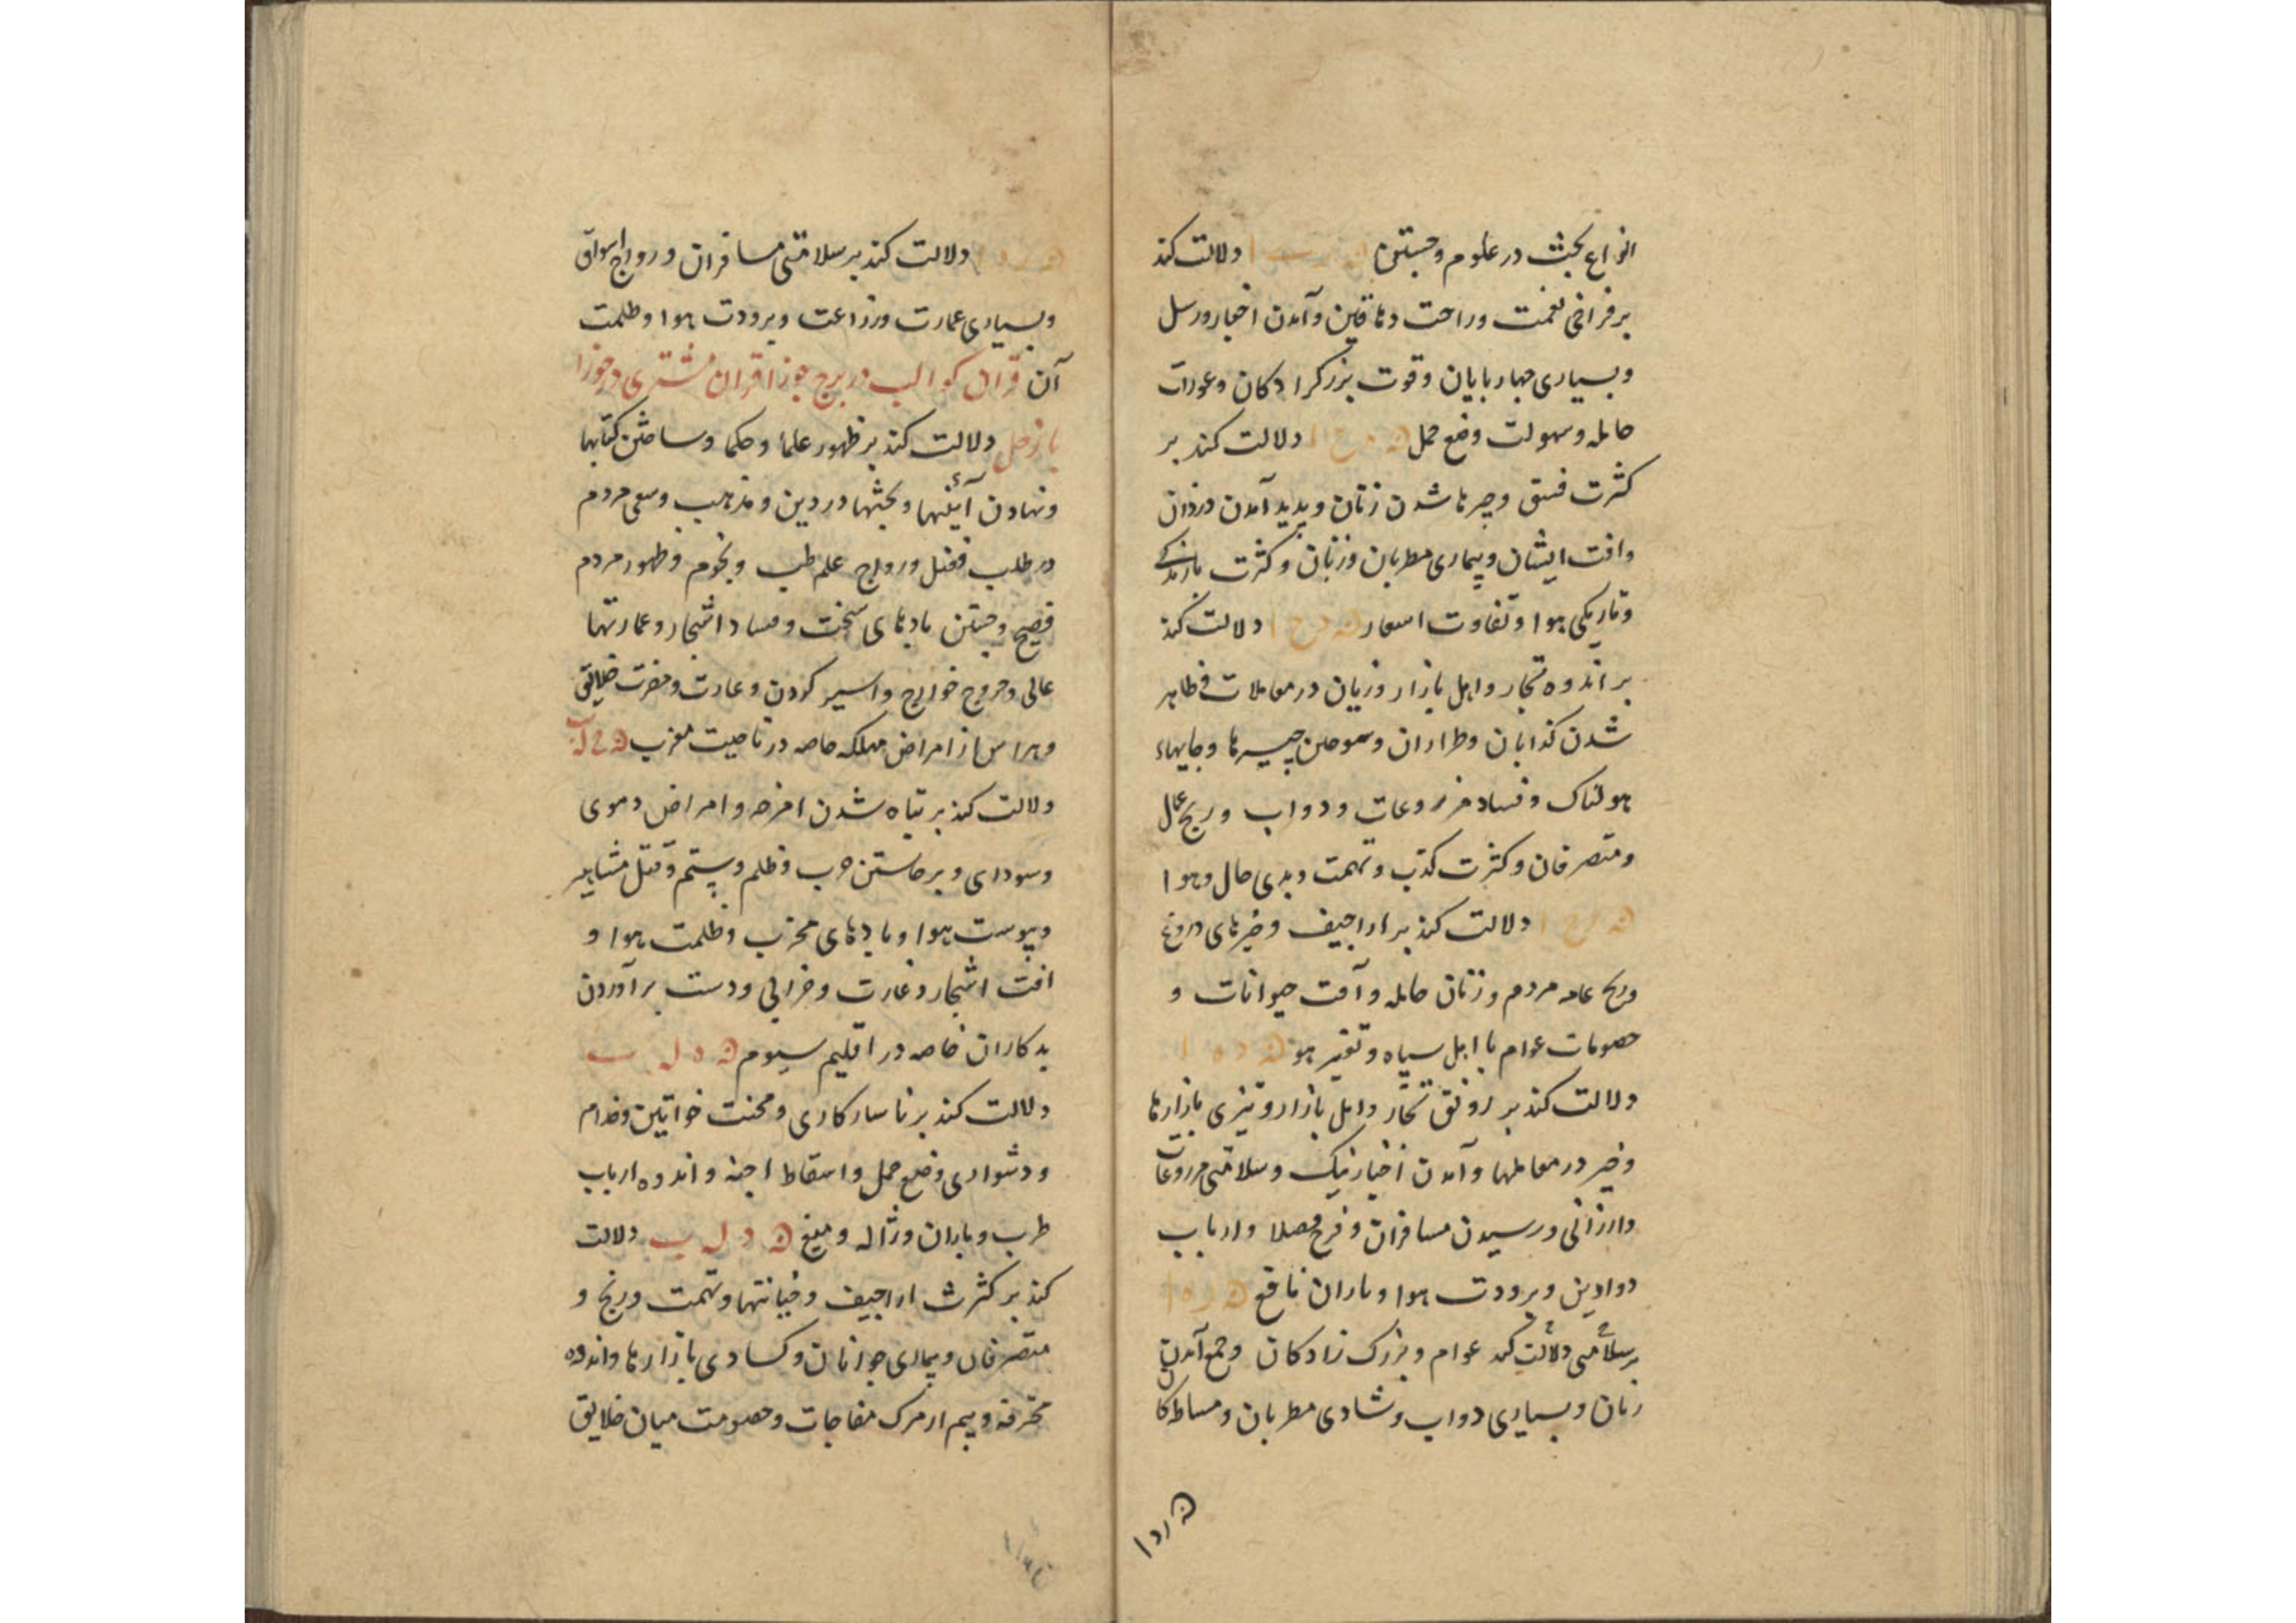 انواع بحث در علوم و جستن دلالت کند
بر فراخی نعمت و راحت دهاقین و آمدن اخبار و رسل
و بسیاری چهارپایان و قوت بزرگزادکان و عورات
حامله و سهولت وضع حمل دلالت کند بر
کثرت فسق و چیرها شدن زنان و پدید آمدن دزدان
و افت ایشان و بیماری مطربان و زنان و کثرت بارندکی
و تاریکی هوا و تفاوت اسعار دلالت کند
بر اندوه تجار و اهل بازار و زیان در معاملات و ظاهر
شدن کذابان و طراران و سوختن چیزها و جایهاء
هولناک و فساد مزروعات و دواب و رنج عمال
و متصرفان و کثرت کذب و تهمت و بدی حال و هوا
دلالت کند بر اراجیف و خبرهای دروغ
و رنج عامه مردم و زنان حامله و آفت حیوانات و
خصومات عوام با اهل سپاه و تغیر هو
دلالت کند بر رونق تجار و اهل بازار و تیزی بازارها
و خیر در معاملها و آمدن اخبار نیک و سلامتی مزروعات
و ارزانی و رسیدن مسافران و فرح فضلا و ارباب
دواوین و برودت هوا و باران نافع
بر سلامتی دلالت کند عوام و بزرک زادکان و جمع آمدن
زنان و بسیاری دواب و شادی مطربان و مشاطکان
دلالت کند بر سلامتی مسافران و رواج اسواق
و بسیاری عمارت و زراعت و برودت هوا و ظلمت
آن قران کواکب در برج جوزا قران مشتری در جوزا
با زحل دلالت کند بر ظهور علما و حکما و ساختن کتابها
و نهادن آئینها و بحثها در دین و مذهب و سعی مردم
در طلب فضل و رواج علم طب و نجوم و ظهور مردم
فصیح و جستن بادهای سخت و فساد اشجار و عمارتها
عالی و خروج خوارج و اسیر کردن و غارت و مضرت خلایق
و هراس از امراض مهلکه خاصه در ناحیت مغرب
دلالت کند بر تباه شدن امزجه و امراض دموی
و سودای و برخاستن حرب و ظلم و ستم و قتل مشاهیر
و یبوست هوا و بادهای مخرب و ظلمت هوا و
افت اشجار و غارت و خرابی و دست برآوردن
بدکاران خاصه در اقلیم سیوم
دلالت کند بر ناسازکاری و محنت خواتین و خدام
و دشواری وضع حمل و اسقاط اجنه و اندوه ارباب
طرب و باران و ژاله و میغ دلالت
کند بر کثرت اراجیف و خیانتها و تهمت و رنج و
متصرفان و بیماری جوانان و کسادی بازارها و اندوه
محترفه و بیم از مرک مفاجات و خصومت میان خلایق